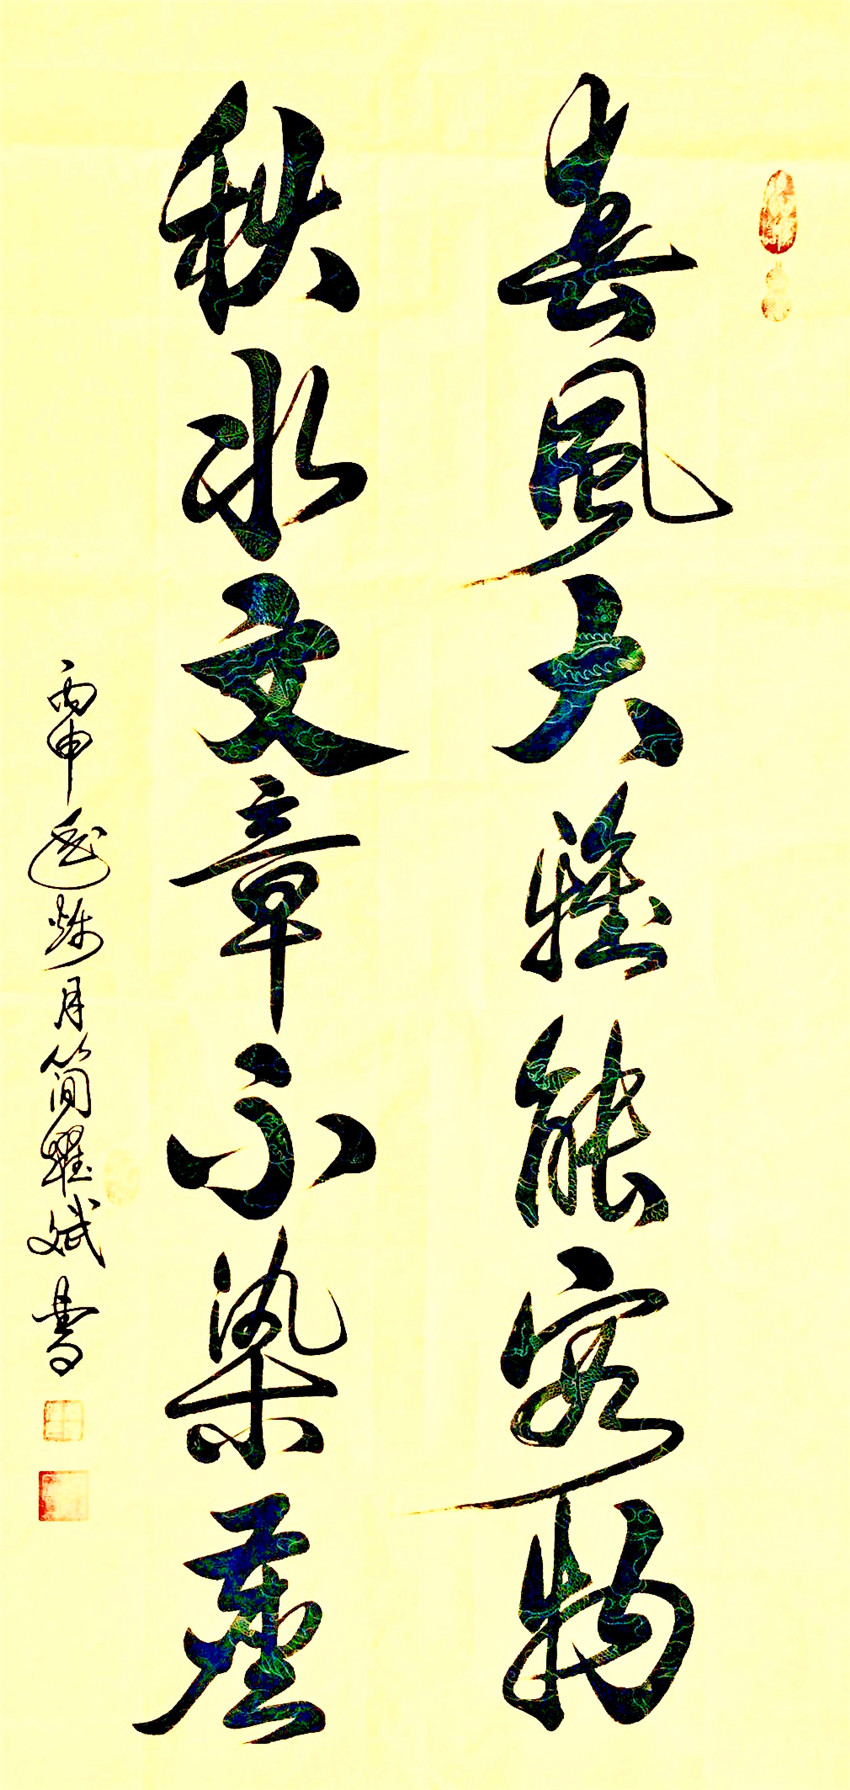 春風大雅能容物
秋水文章不染塵
丙申 月简耀斌書